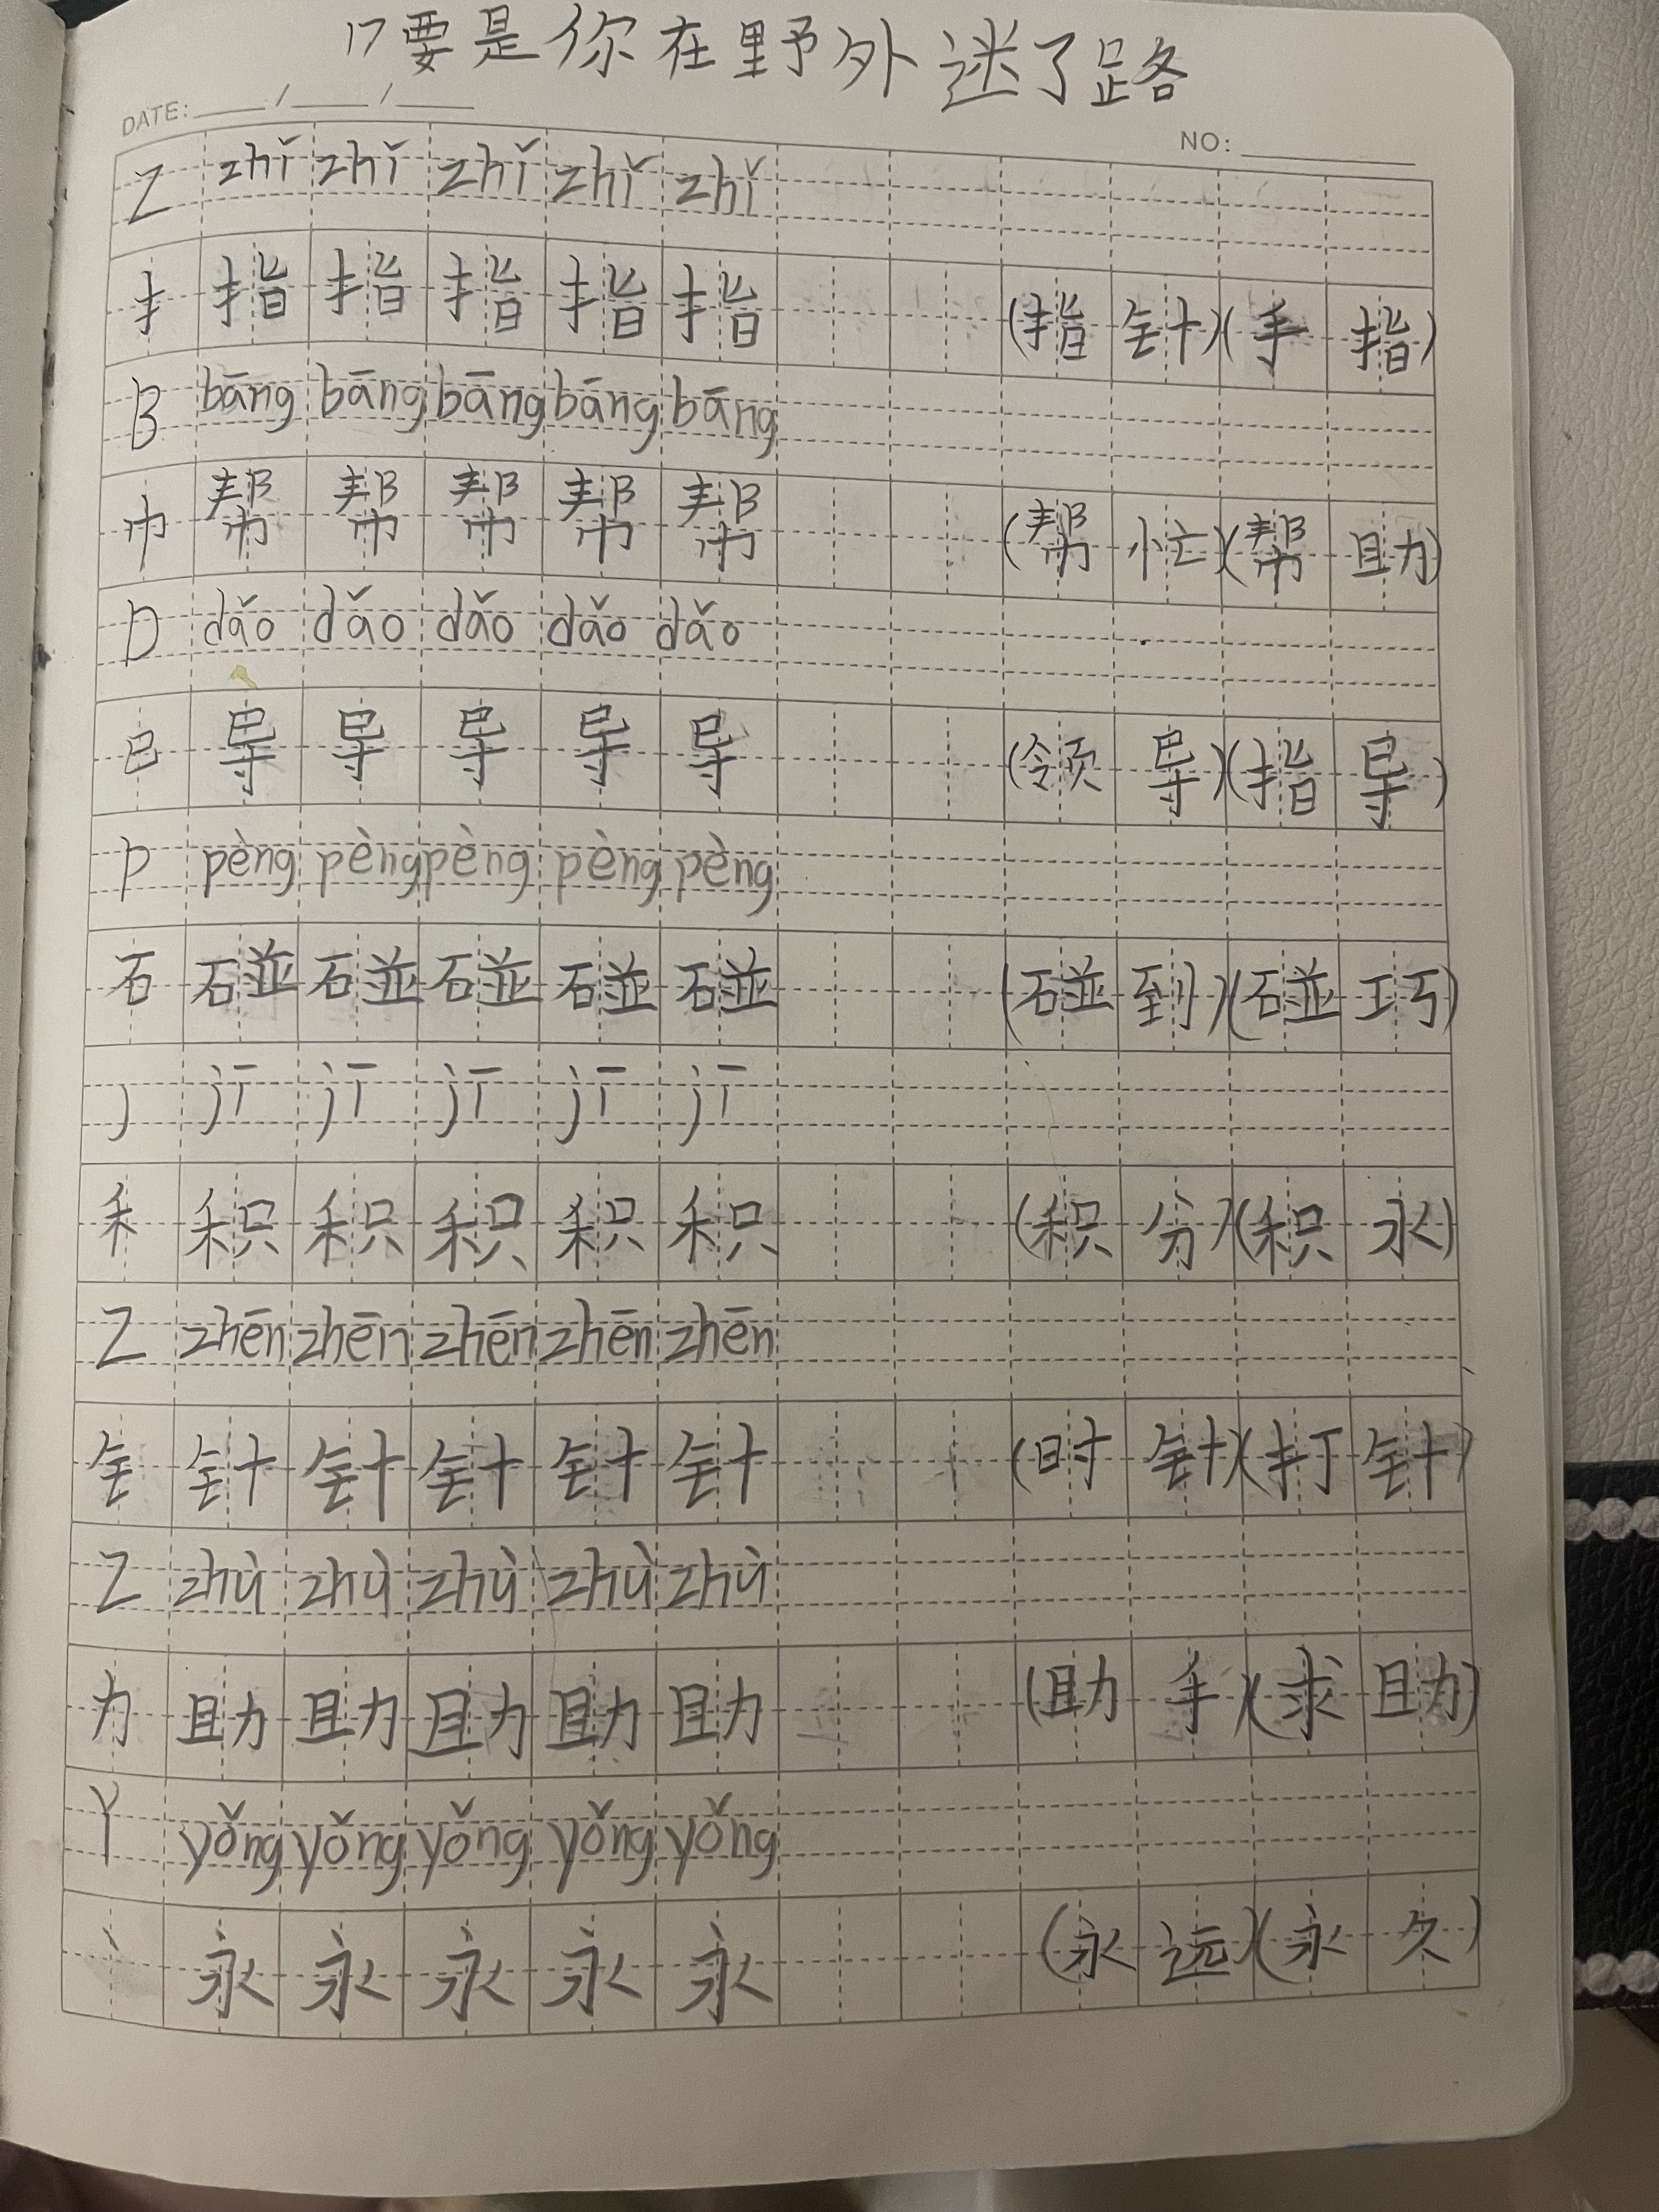 17要是你在野外迷了路
DATE: / /
NO:
Z zhǐ zhǐ zhǐ zhǐ zhǐ
扌 指 指 指 指 指 (指针)(手指)
B bāng bāng bāng bāng bāng
巾 帮 帮 帮 帮 帮 (帮忙)(帮助)
D dǎo dǎo dǎo dǎo dǎo
巳 导 导 导 导 导 (领导)(指导)
P pèng pèng pèng pèng pèng
石 碰 碰 碰 碰 碰 (碰到)(碰巧)
J jī jī jī jī jī
禾 积 积 积 积 积 (积分)(积水)
Z zhēn zhēn zhēn zhēn zhēn
钅 针 针 针 针 针 (时针)(打针)
Z zhù zhù zhù zhù zhù
力 助 助 助 助 助 (助手)(求助)
Y yǒng yǒng yǒng yǒng yǒng
丶 永 永 永 永 永 (永远)(永久)